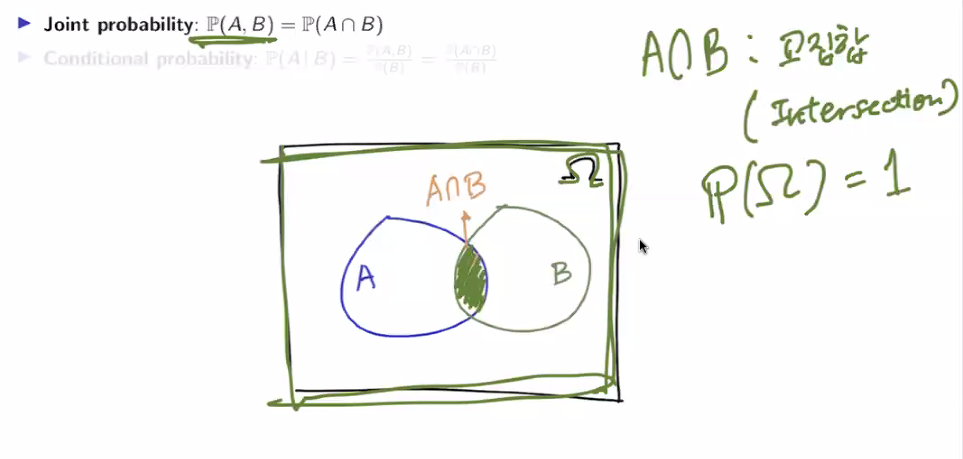 ▶ Joint probability: ℙ(A, B) = ℙ(A ∩ B)
▶ Conditional probability: ℙ(A | B) = ℙ(A,B)/ℙ(B) = ℙ(A∩B)/ℙ(B)
A∩B : 교집합
(Intersection)
ℙ(Ω) = 1
Ω
A∩B
A
B